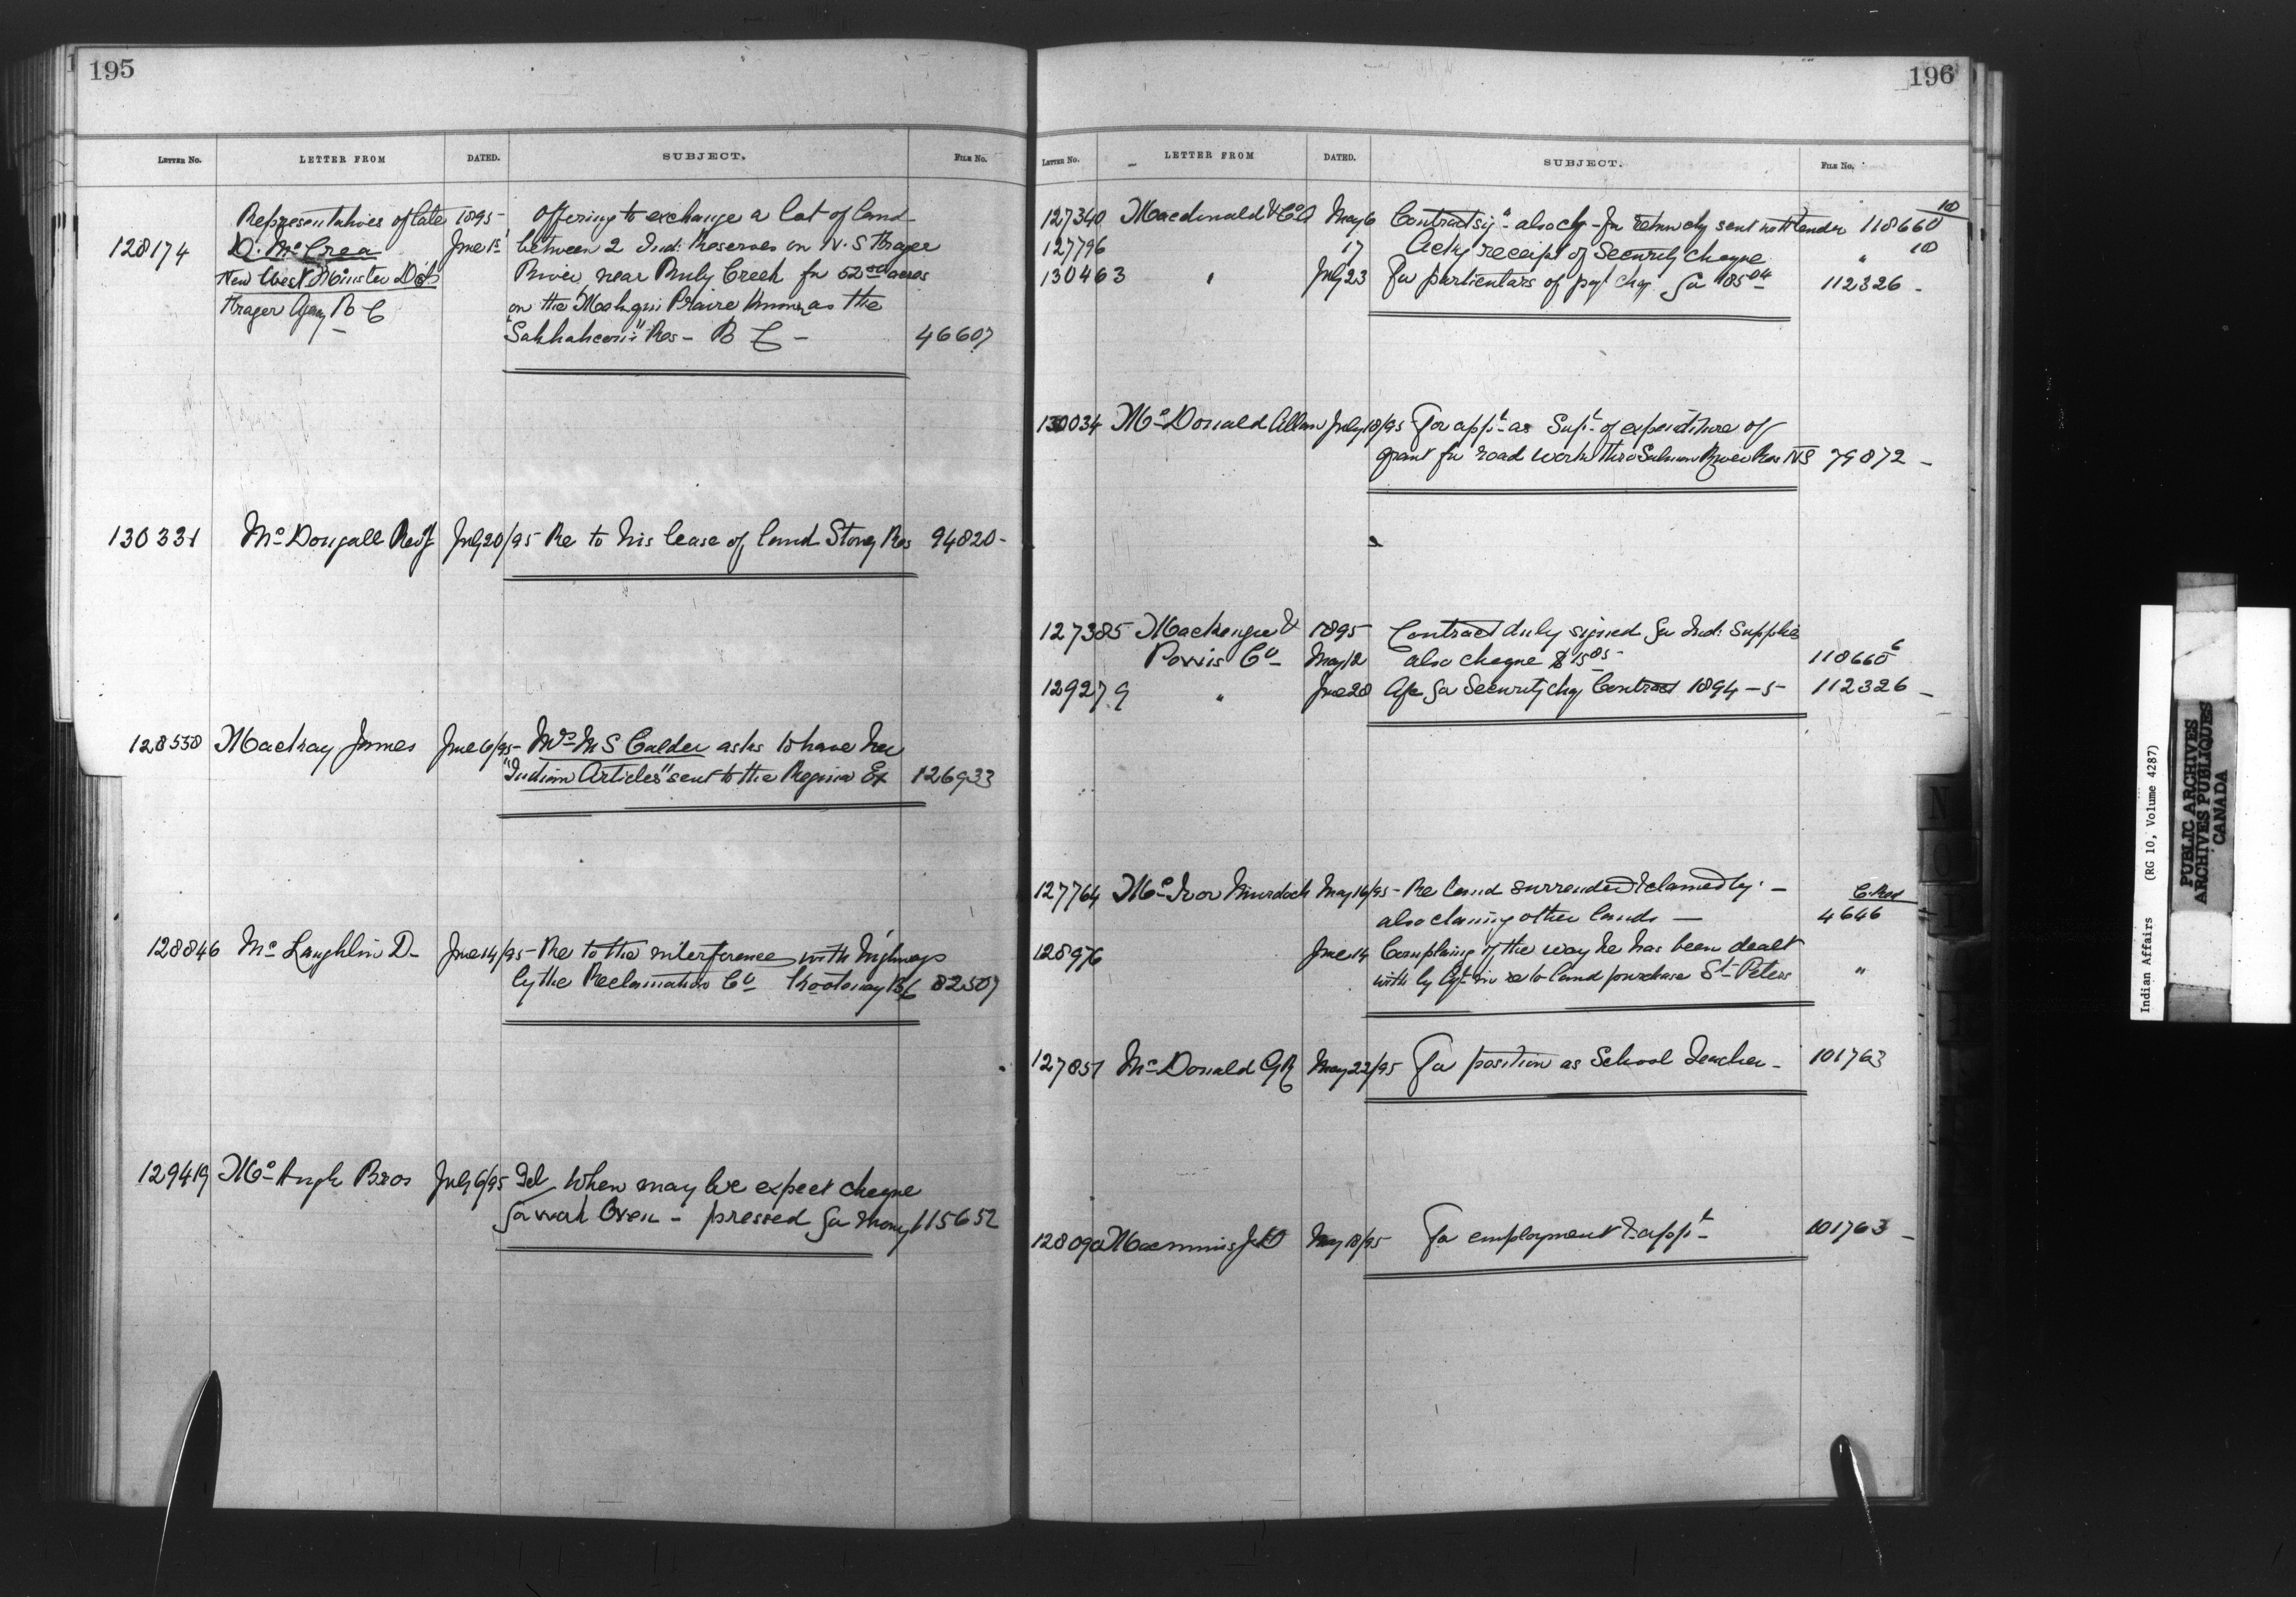 195
LETTER NO. LETTER FROM DATED. SUBJECT. FILE NO.
Representatives of late 1895 Offering to exchange a lot of land
128174 D. McCrea June 1st between 2 Ind: Reserves on N. S Fraser
New West Minister Dist River, near Ruby Creek for 52 acres
Fraser Agency B C on the Prairie known as the
Res - B C - 46607
130331 McDougall Rev J July 20/95 Re to his lease of land Stony Res 94820 -
128538 Mackay James June 6/95 - Mrs M S Calder asks to have her
"Indian Articles" sent to the Regina Ex 126933
128846 McLaughlin D - June 14/95 - Re to the interference with highways
by the Reclamation Co Kootenay BC 82507
129419 McHugh Bros July 6/95 Tel When may we expect cheque
for work Oxen - pressed for money 115652
196
LETTER NO. LETTER FROM DATED. SUBJECT. FILE NO.
127340 Macdonald & Co May 6 Contract also chq for sent with tender 118660 10
127796 17 Ackg receipt of Security cheque " 10
130463 " July 23 For particulars of chq for 185 04 112326 -
130034 McDonald Allan July 18/95 For appt as Supt of expenditure of
grant for road work thro Salmon River Res NS 79872 -
127385 Mackenzie & 1895 Contract duly signed for Ind: Supplies
Powis Co May 12 also cheque $15 05 118660 6
129279 " June 28 for Security chq Contract 1894-5- 112326 -
127764 McIvor Murdoch May 16/95 - Re land surrendered & claimed by -
also claiming other lands - 4646
128976 June 14 Complaing of the way he has been dealt
with by in re to land purchase St Peters "
127851 McDonald G R May 22/95 For position as School Teacher - 101763
128090 Macinnis May 18/95 For employment & appt - 101763 -
Indian Affairs (RG 10, Volume 4287)
PUBLIC ARCHIVES
ARCHIVES PUBLIQUES
CANADA
N